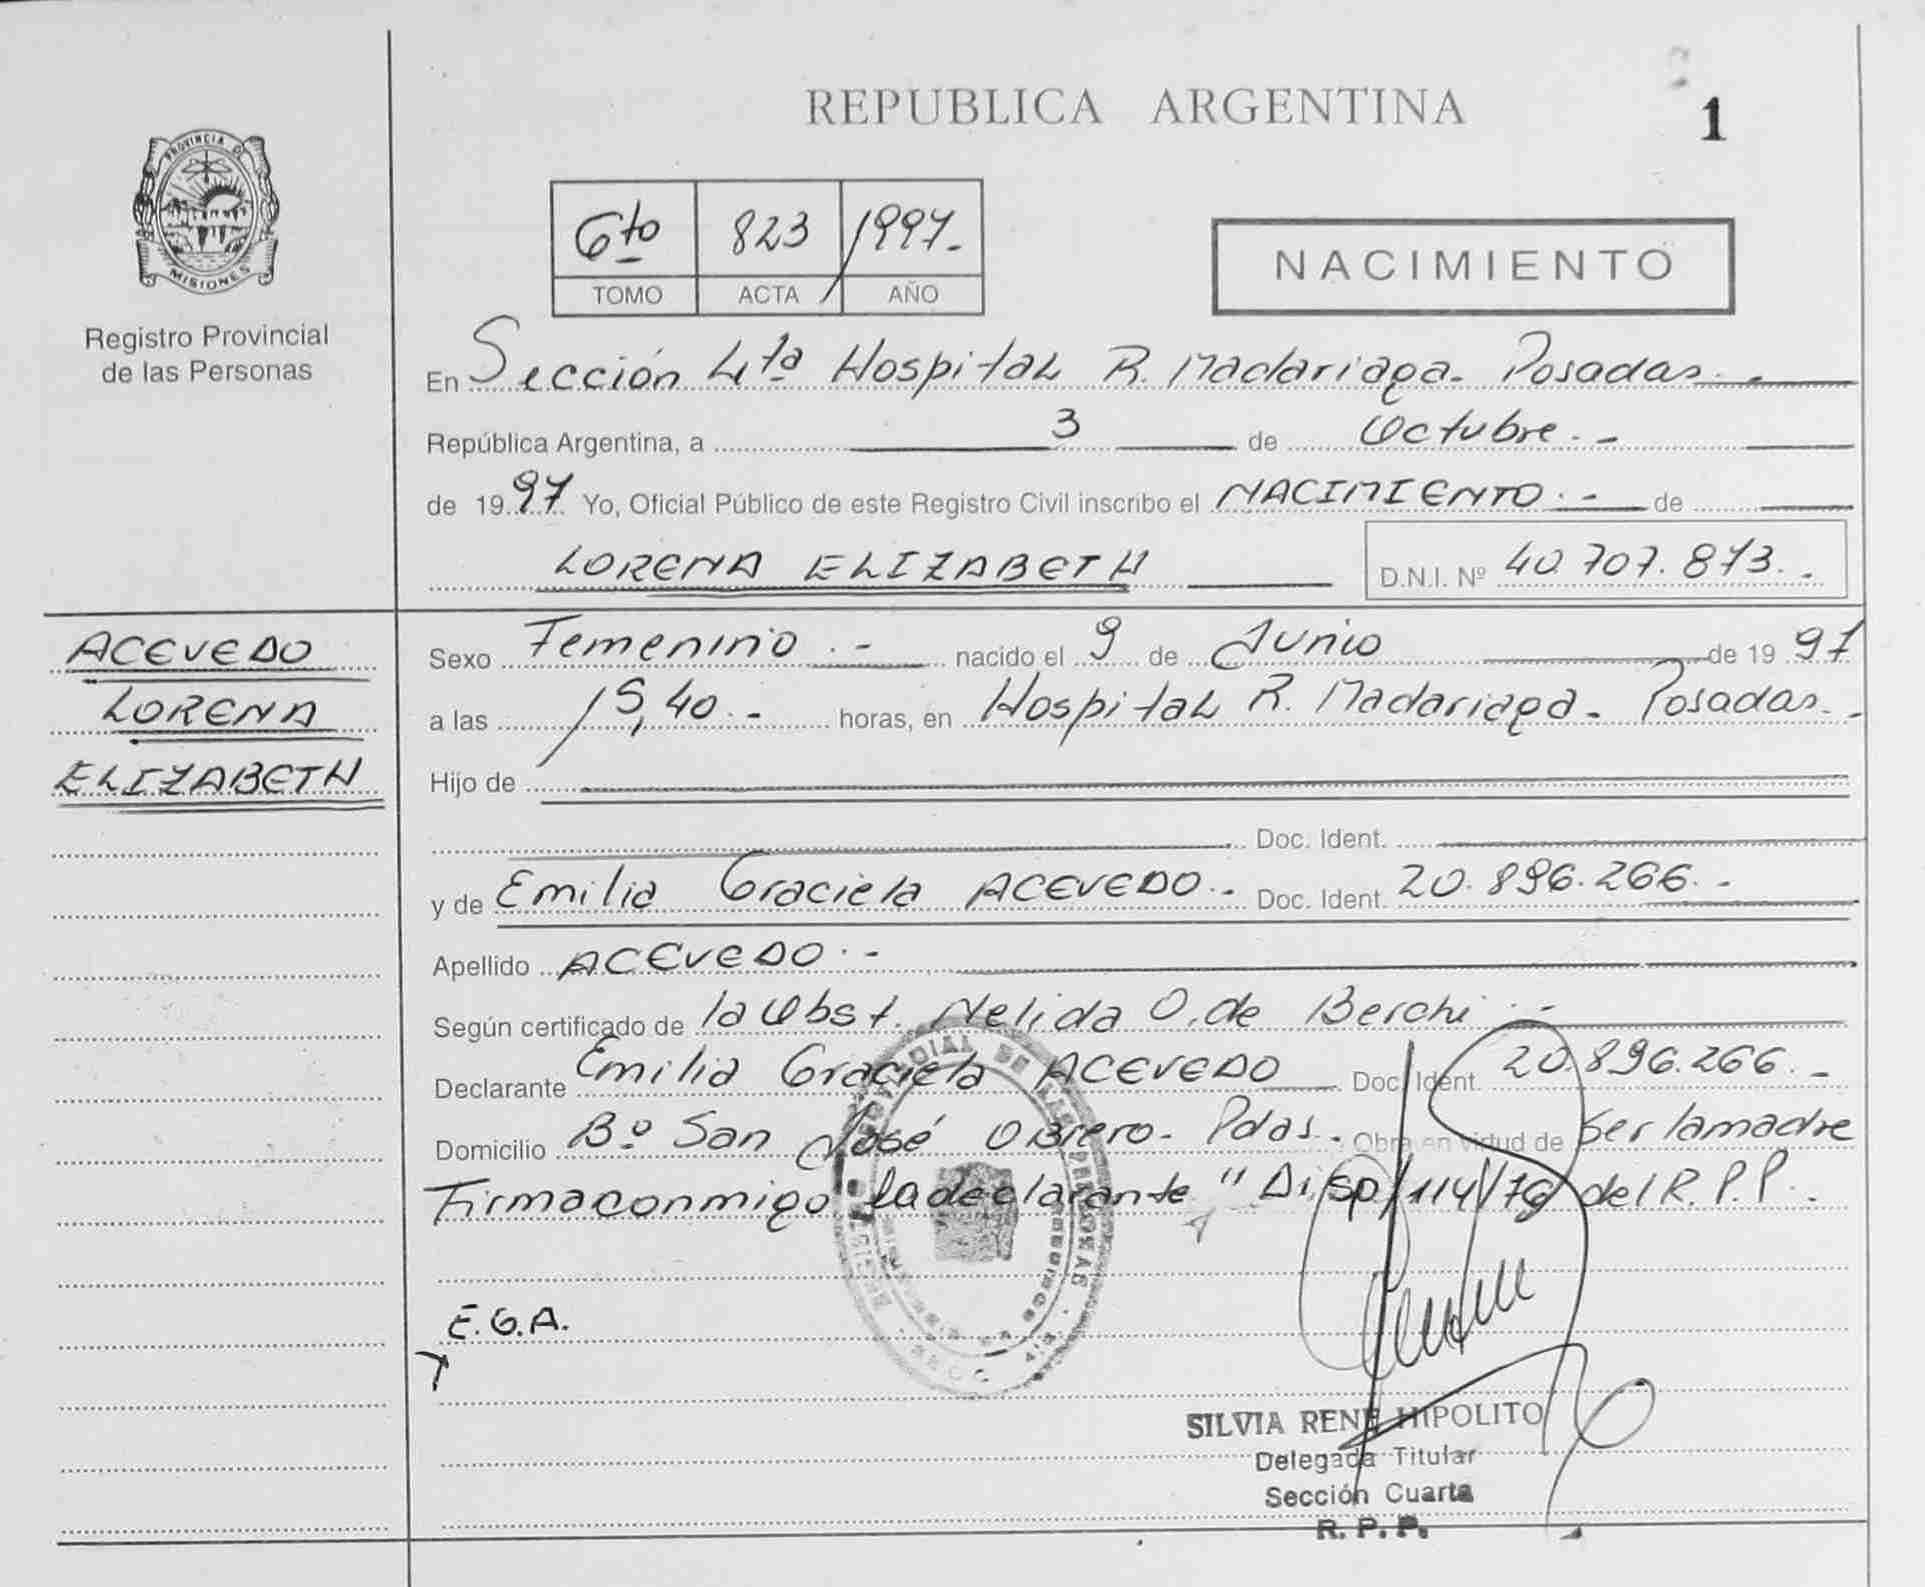 REPUBLICA ARGENTINA
1
PROVINCIA DE
MISIONES
Registro Provincial
de las Personas
6to 823 1997.-
TOMO ACTA AÑO
NACIMIENTO
En Sección 4ta Hospital R. Madariaga. Posadas.-
República Argentina, a 3 de Octubre.-
de 1997 Yo, Oficial Público de este Registro Civil inscribo el NACIMIENTO.- de
LORENA ELIZABETH D.N.I. Nº 40 707.873.-
ACEVEDO
LORENA
ELIZABETH
Sexo Femenino.- nacido el 9 de Junio de 1997
a las 15,40.- horas, en Hospital R. Madariaga. Posadas.-
Hijo de
Doc. Ident.
y de Emilia Graciela ACEVEDO.- Doc. Ident. 20.896.266.-
Apellido ACEVEDO.-
Según certificado de la Obst. Nelida O. de Berchi.-
Declarante Emilia Graciela ACEVEDO Doc. Ident. 20.896.266.-
Domicilio Bº San José Obrero. Pdas. Obra en virtud de ser la madre
Firma conmigo la declarante "Disp/114/76 del R.P.P.
E.G.A.
SILVIA RENE HIPOLITO
Delegada Titular
Sección Cuarta
R. P. P.